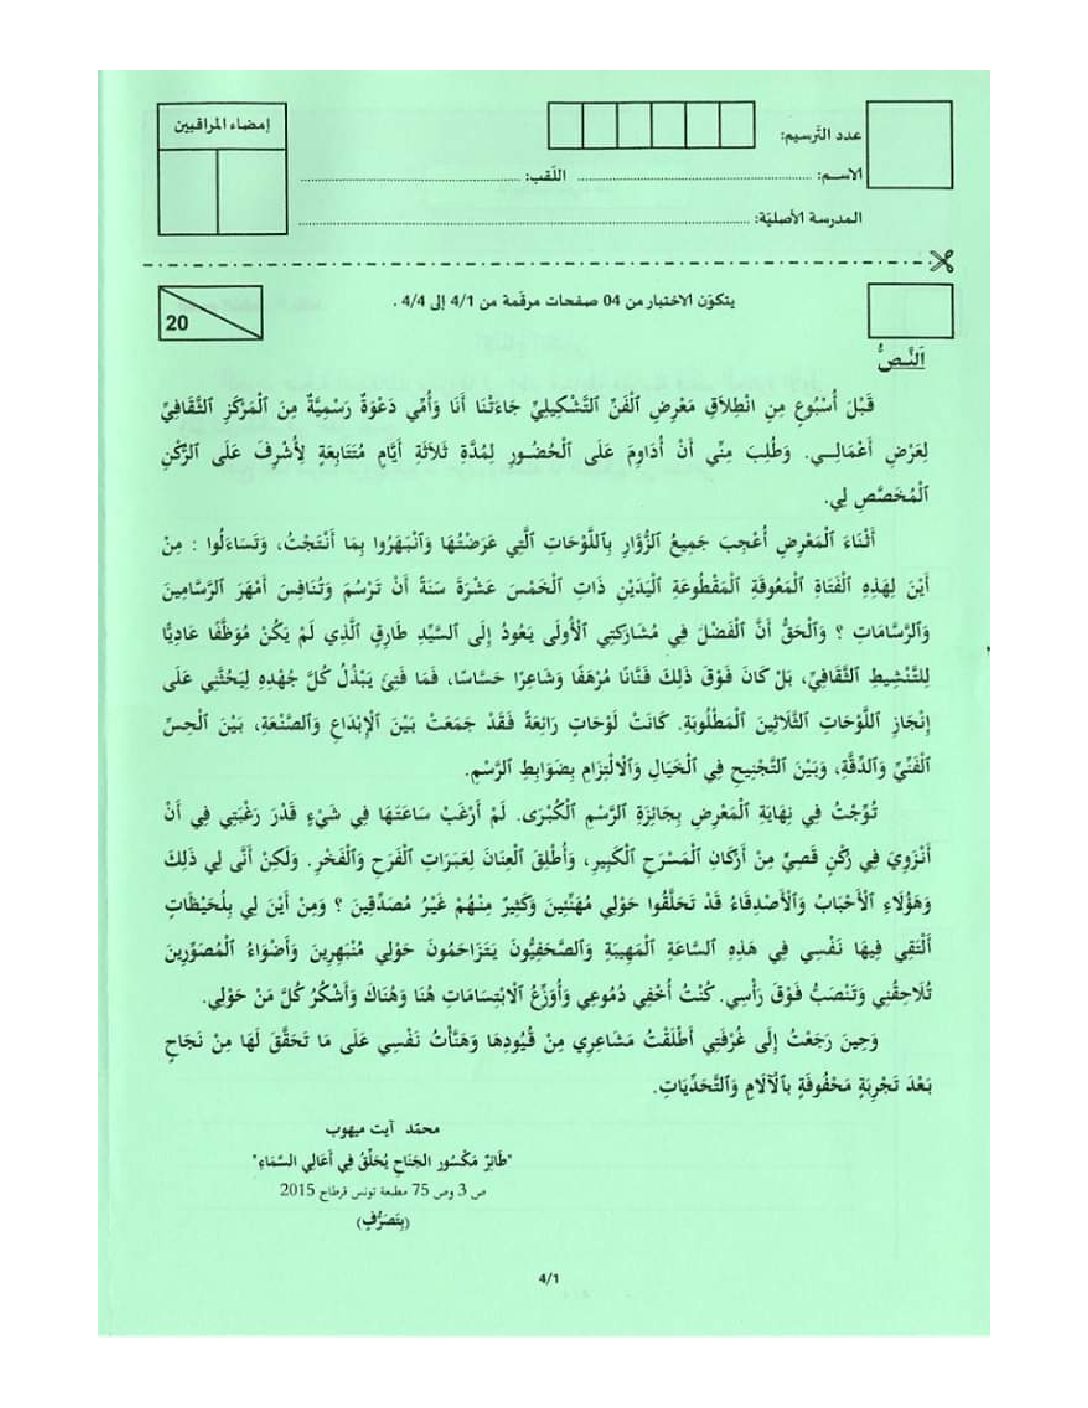 إمضاء المراقبين
عدد الترسيم:
الاسم: اللّقب:
المدرسة الأصليّة:
يتكوّن الاختبار من 04 صفحات مرقّمة من 4/1 إلى 4/4 .
20
اَلنَّصُّ
قَبْلَ أُسْبُوعٍ مِنِ انْطِلَاقِ مَعْرِضِ ٱلْفَنِّ ٱلتَّشْكِيلِيِّ جَاءَتْنَا أَنَا وَأُمِّي دَعْوَةٌ رَسْمِيَّةٌ مِنَ ٱلْمَرْكَزِ ٱلثَّقَافِيِّ
لِعَرْضِ أَعْمَالِي. وَطُلِبَ مِنِّي أَنْ أُدَاوِمَ عَلَى ٱلْحُضُورِ لِمُدَّةِ ثَلَاثَةِ أَيَّامٍ مُتَتَابِعَةٍ لِأُشْرِفَ عَلَى ٱلرُّكْنِ
ٱلْمُخَصَّصِ لِي.
أَثْنَاءَ ٱلْمَعْرِضِ أُعْجِبَ جَمِيعُ ٱلزُّوَّارِ بِٱللَّوْحَاتِ ٱلَّتِي عَرَضْتُهَا وَٱنْبَهَرُوا بِمَا أَنْتَجْتُ، وَتَسَاءَلُوا : مِنْ
أَيْنَ لِهَذِهِ ٱلْفَتَاةِ ٱلْمَعُوقَةِ ٱلْمَقْطُوعَةِ ٱلْيَدَيْنِ ذَاتِ ٱلْخَمْسَ عَشْرَةَ سَنَةً أَنْ تَرْسُمَ وَتُنَافِسَ أَمْهَرَ ٱلرَّسَّامِينَ
وَٱلرَّسَّامَاتِ ؟ وَٱلْحَقُّ أَنَّ ٱلْفَضْلَ فِي مُشَارَكَتِي ٱلْأُولَى يَعُودُ إِلَى ٱلسَّيِّدِ طَارِقٍ ٱلَّذِي لَمْ يَكُنْ مُوَظَّفًا عَادِيًّا
لِلتَّنْشِيطِ ٱلثَّقَافِيِّ، بَلْ كَانَ فَوْقَ ذَلِكَ فَنَّانًا مُرْهَفًا وَشَاعِرًا حَسَّاسًا، فَمَا فَتِئَ يَبْذُلُ كُلَّ جُهْدِهِ لِيَحُثَّنِي عَلَى
إِنْجَازِ ٱللَّوْحَاتِ ٱلثَّلَاثِينَ ٱلْمَطْلُوبَةِ. كَانَتْ لَوْحَاتٍ رَائِعَةً فَقَدْ جَمَعَتْ بَيْنَ ٱلْإِبْدَاعِ وَٱلصَّنْعَةِ، بَيْنَ ٱلْحِسِّ
ٱلْفَنِّيِّ وَٱلدِّقَّةِ، وَبَيْنَ ٱلتَّجْنِيحِ فِي ٱلْخَيَالِ وَٱلْالْتِزَامِ بِضَوَابِطِ ٱلرَّسْمِ.
تُوِّجْتُ فِي نِهَايَةِ ٱلْمَعْرِضِ بِجَائِزَةِ ٱلرَّسْمِ ٱلْكُبْرَى. لَمْ أَرْغَبْ سَاعَتَهَا فِي شَيْءٍ قَدْرَ رَغْبَتِي فِي أَنْ
أَنْزَوِيَ فِي رُكْنٍ قَصِيٍّ مِنْ أَرْكَانِ ٱلْمَسْرَحِ ٱلْكَبِيرِ، وَأُطْلِقَ ٱلْعِنَانَ لِعَبَرَاتِ ٱلْفَرَحِ وَٱلْفَخْرِ. وَلَكِنْ أَنَّى لِي ذَلِكَ
وَهَؤُلَاءِ ٱلْأَحْبَابُ وَٱلْأَصْدِقَاءُ قَدْ تَحَلَّقُوا حَوْلِي مُهَنِّئِينَ وَكَثِيرٌ مِنْهُمْ غَيْرُ مُصَدِّقِينَ ؟ وَمِنْ أَيْنَ لِي بِلُحَيْظَاتٍ
أَلْتَقِي فِيهَا نَفْسِي فِي هَذِهِ ٱلسَّاعَةِ ٱلْمَهِيبَةِ وَٱلصَّحَفِيُّونَ يَتَزَاحَمُونَ حَوْلِي مُنْبَهِرِينَ وَأَضْوَاءُ ٱلْمُصَوِّرِينَ
تُلَاحِقُنِي وَتَنْصَبُّ فَوْقَ رَأْسِي. كُنْتُ أُخْفِي دُمُوعِي وَأُوَزِّعُ ٱلْابْتِسَامَاتِ هُنَا وَهُنَاكَ وَأَشْكُرُ كُلَّ مَنْ حَوْلِي.
وَحِينَ رَجَعْتُ إِلَى غُرْفَتِي أَطْلَقْتُ مَشَاعِرِي مِنْ قُيُودِهَا وَهَنَّأْتُ نَفْسِي عَلَى مَا تَحَقَّقَ لَهَا مِنْ نَجَاحٍ
بَعْدَ تَجْرِبَةٍ مَحْفُوفَةٍ بِٱلْآلَامِ وَٱلتَّحَدِّيَاتِ.
محمّد آيت ميهوب
"طَائِرٌ مَكْسُور الجَنَاحِ يُحَلِّقُ فِي أَعَالِي السَّمَاءِ"
ص 3 وص 75 مطبعة تونس قرطاج 2015
(بِتَصَرُّفٍ)
4/1